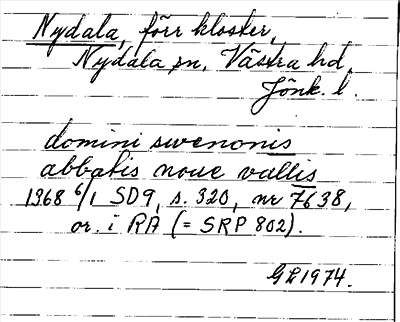 Nydala, förr kloster,
Nydala sn, Västra hd,
Jönk. l.
domini swenonis
abbatis noue vallis
1368 6/1 SD9, s. 320, nr 7638,
or. i RA (= SRP 802).
GL1974.